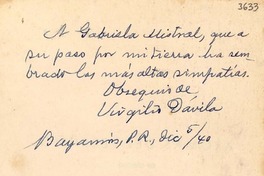 3633
A Gabriela Mistral, que a
su paso por mi tierra ha sem-
brado las más altas simpatías.
Obsequio de
Virgilio Dávila
Bayamón, P.R., dic 5/40